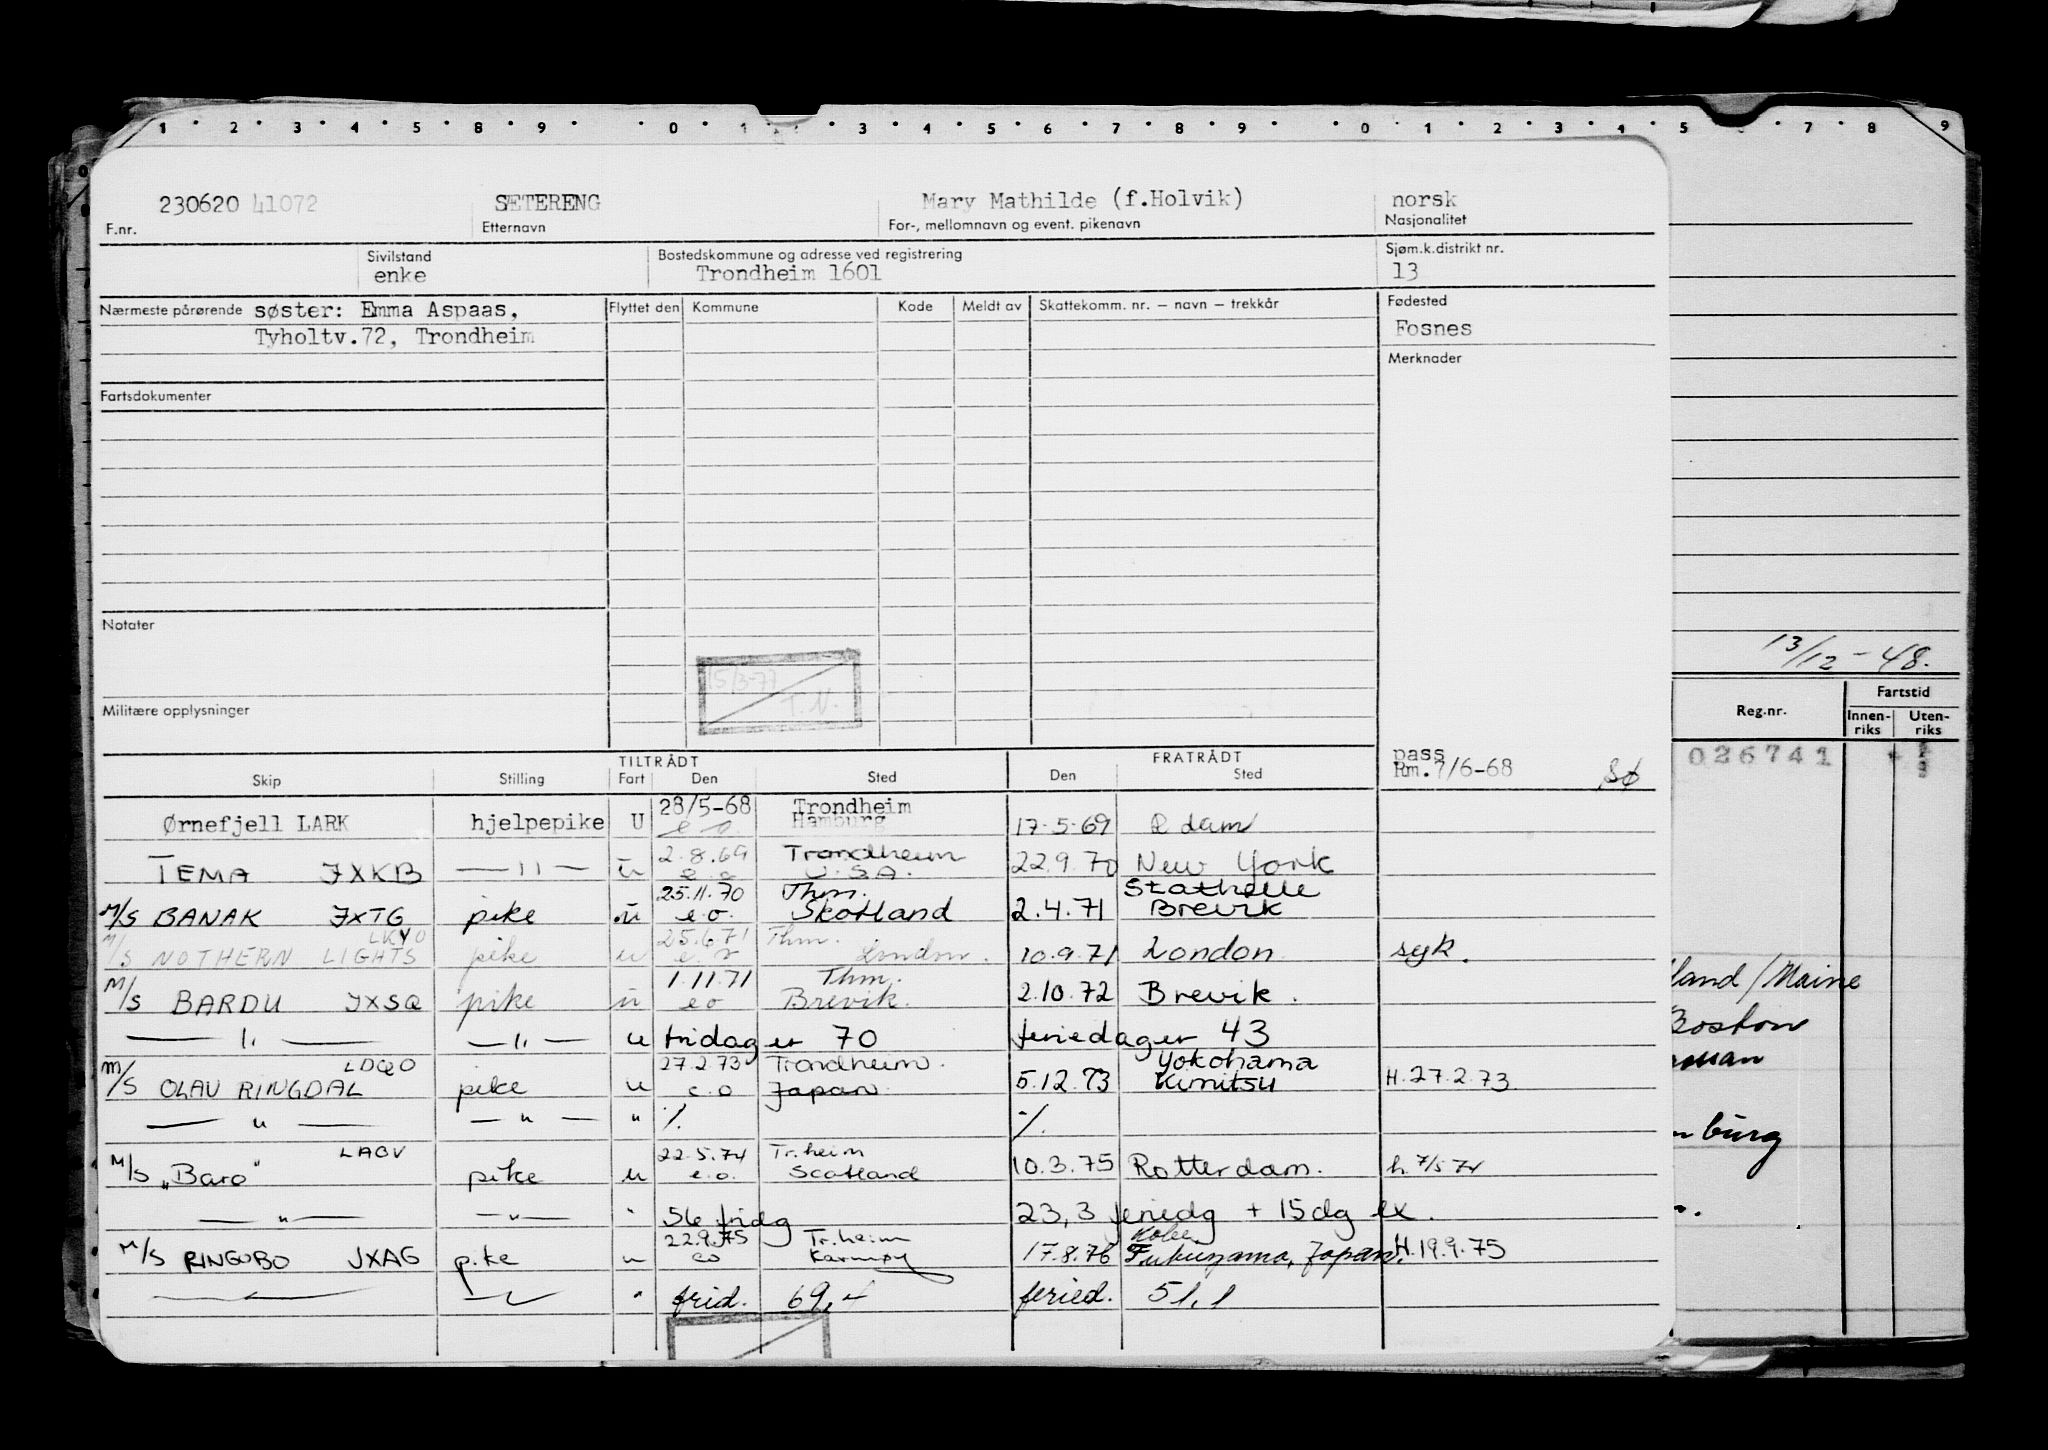 1 2 3 4 5 8 9 0 1 3 4 5 6 7 8 9 0 1 2 3 4 5 7 8 9
230620 41072 SÆTERENG Mary Mathilde (f.Holvik) norsk
F.nr. Etternavn For-, mellomnavn og event. pikenavn Nasjonalitet
Sivilstand Bostedskommune og adresse ved registrering Sjøm.k.distrikt nr.
enke Trondheim 1601 13
Nærmeste pårørende søster: Emma Aspaas, Flyttet den Kommune Kode Meldt av Skattekomm. nr. – navn – trekkår Fødested
Tyholtv.72, Trondheim Fosnes
Merknader
Fartsdokumenter
Notater
13/12-48.
15/3-77
T.N.
Militære opplysninger
Reg.nr. Fartstid
Innen-riks Uten-riks
TILTRÅDT FRATRÅDT pass
Skip Stilling Fart Den Sted Den Sted Rm.7/6-68 SØ
026741
28/5-68 Trondheim
Ørnefjell LARK hjelpepike U e o Hamburg 17-5-69 R dam
2.8.69 Trondheim
TEMA JXKB — " — u e.o U.S.A. 22.9.70 New York
25.11.70 Thm. Stathelle
M/S BANAK JXTG pike u e.o. Skotland 2.4.71 Brevik
LKYO 25.6.71 Thm.
M/S NOTHERN LIGHTS pike u e.o London. 10.9.71 London syk.
1.11.71 Thm.
M/S BARDU JXSQ pike u eo Brevik. 2.10.72 Brevik.
— " — — " — u fridager 70 feriedager 43
LDQO 27.2.73 Trondheim. Yokohama
M/S OLAV RINGDAL pike u e.o Japan 5.12.73 Kimitsu H.27.2.73
— " — — " — " ./. ./.
LAOV 22.5.74 Tr.heim
M/S "Baro" pike u e.o. Scotland 10.3.75 Rotterdam. h.7/5 74
— " — — " — " 56 fridg 23,3 feriedg + 15 dg ex.
22.9.75 Tr.heim Kobe
M/S RINGOBO JXAG pike u eo Karmøy 17.8.76 Fukuyama, Japan. H.19.9.75
— " — — " — " frid. 69,- feried. 51,1
land/Maine
Boston
burg